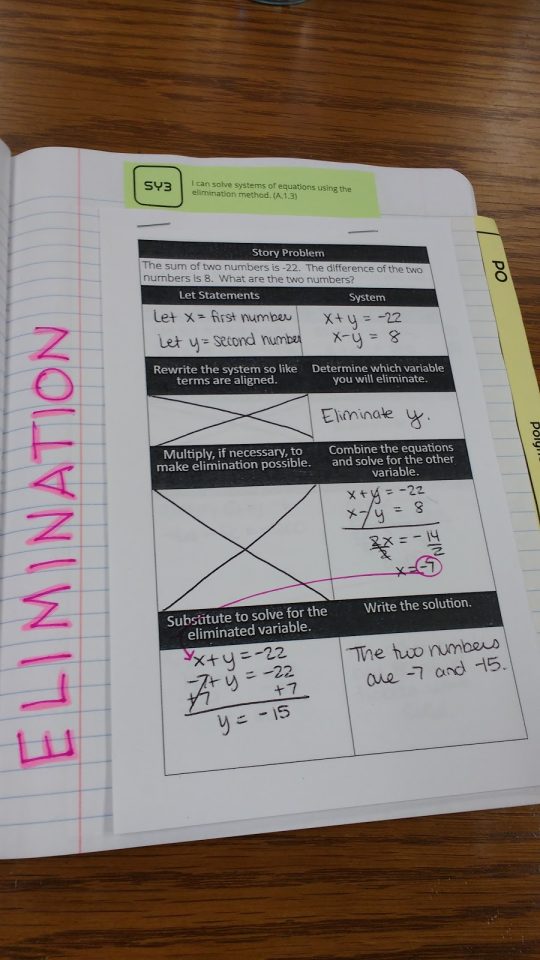 SY3
I can solve systems of equations using the
elimination method. (A.1.3)
PO
ELIMINATION
Story Problem
The sum of two numbers is -22. The difference of the two
numbers is 8. What are the two numbers?
Let Statements
System
Let x = first number
Let y = second number
x+y = -22
x-y = 8
Rewrite the system so like
terms are aligned.
Determine which variable
you will eliminate.
Eliminate y.
Multiply, if necessary, to
make elimination possible.
Combine the equations
and solve for the other
variable.
x+y = -22
x-y = 8
2x = -14
2 2
x=-7
Substitute to solve for the
eliminated variable.
x+y = -22
-7+y = -22
+7 +7
y = -15
Write the solution.
The two numbers
are -7 and -15.